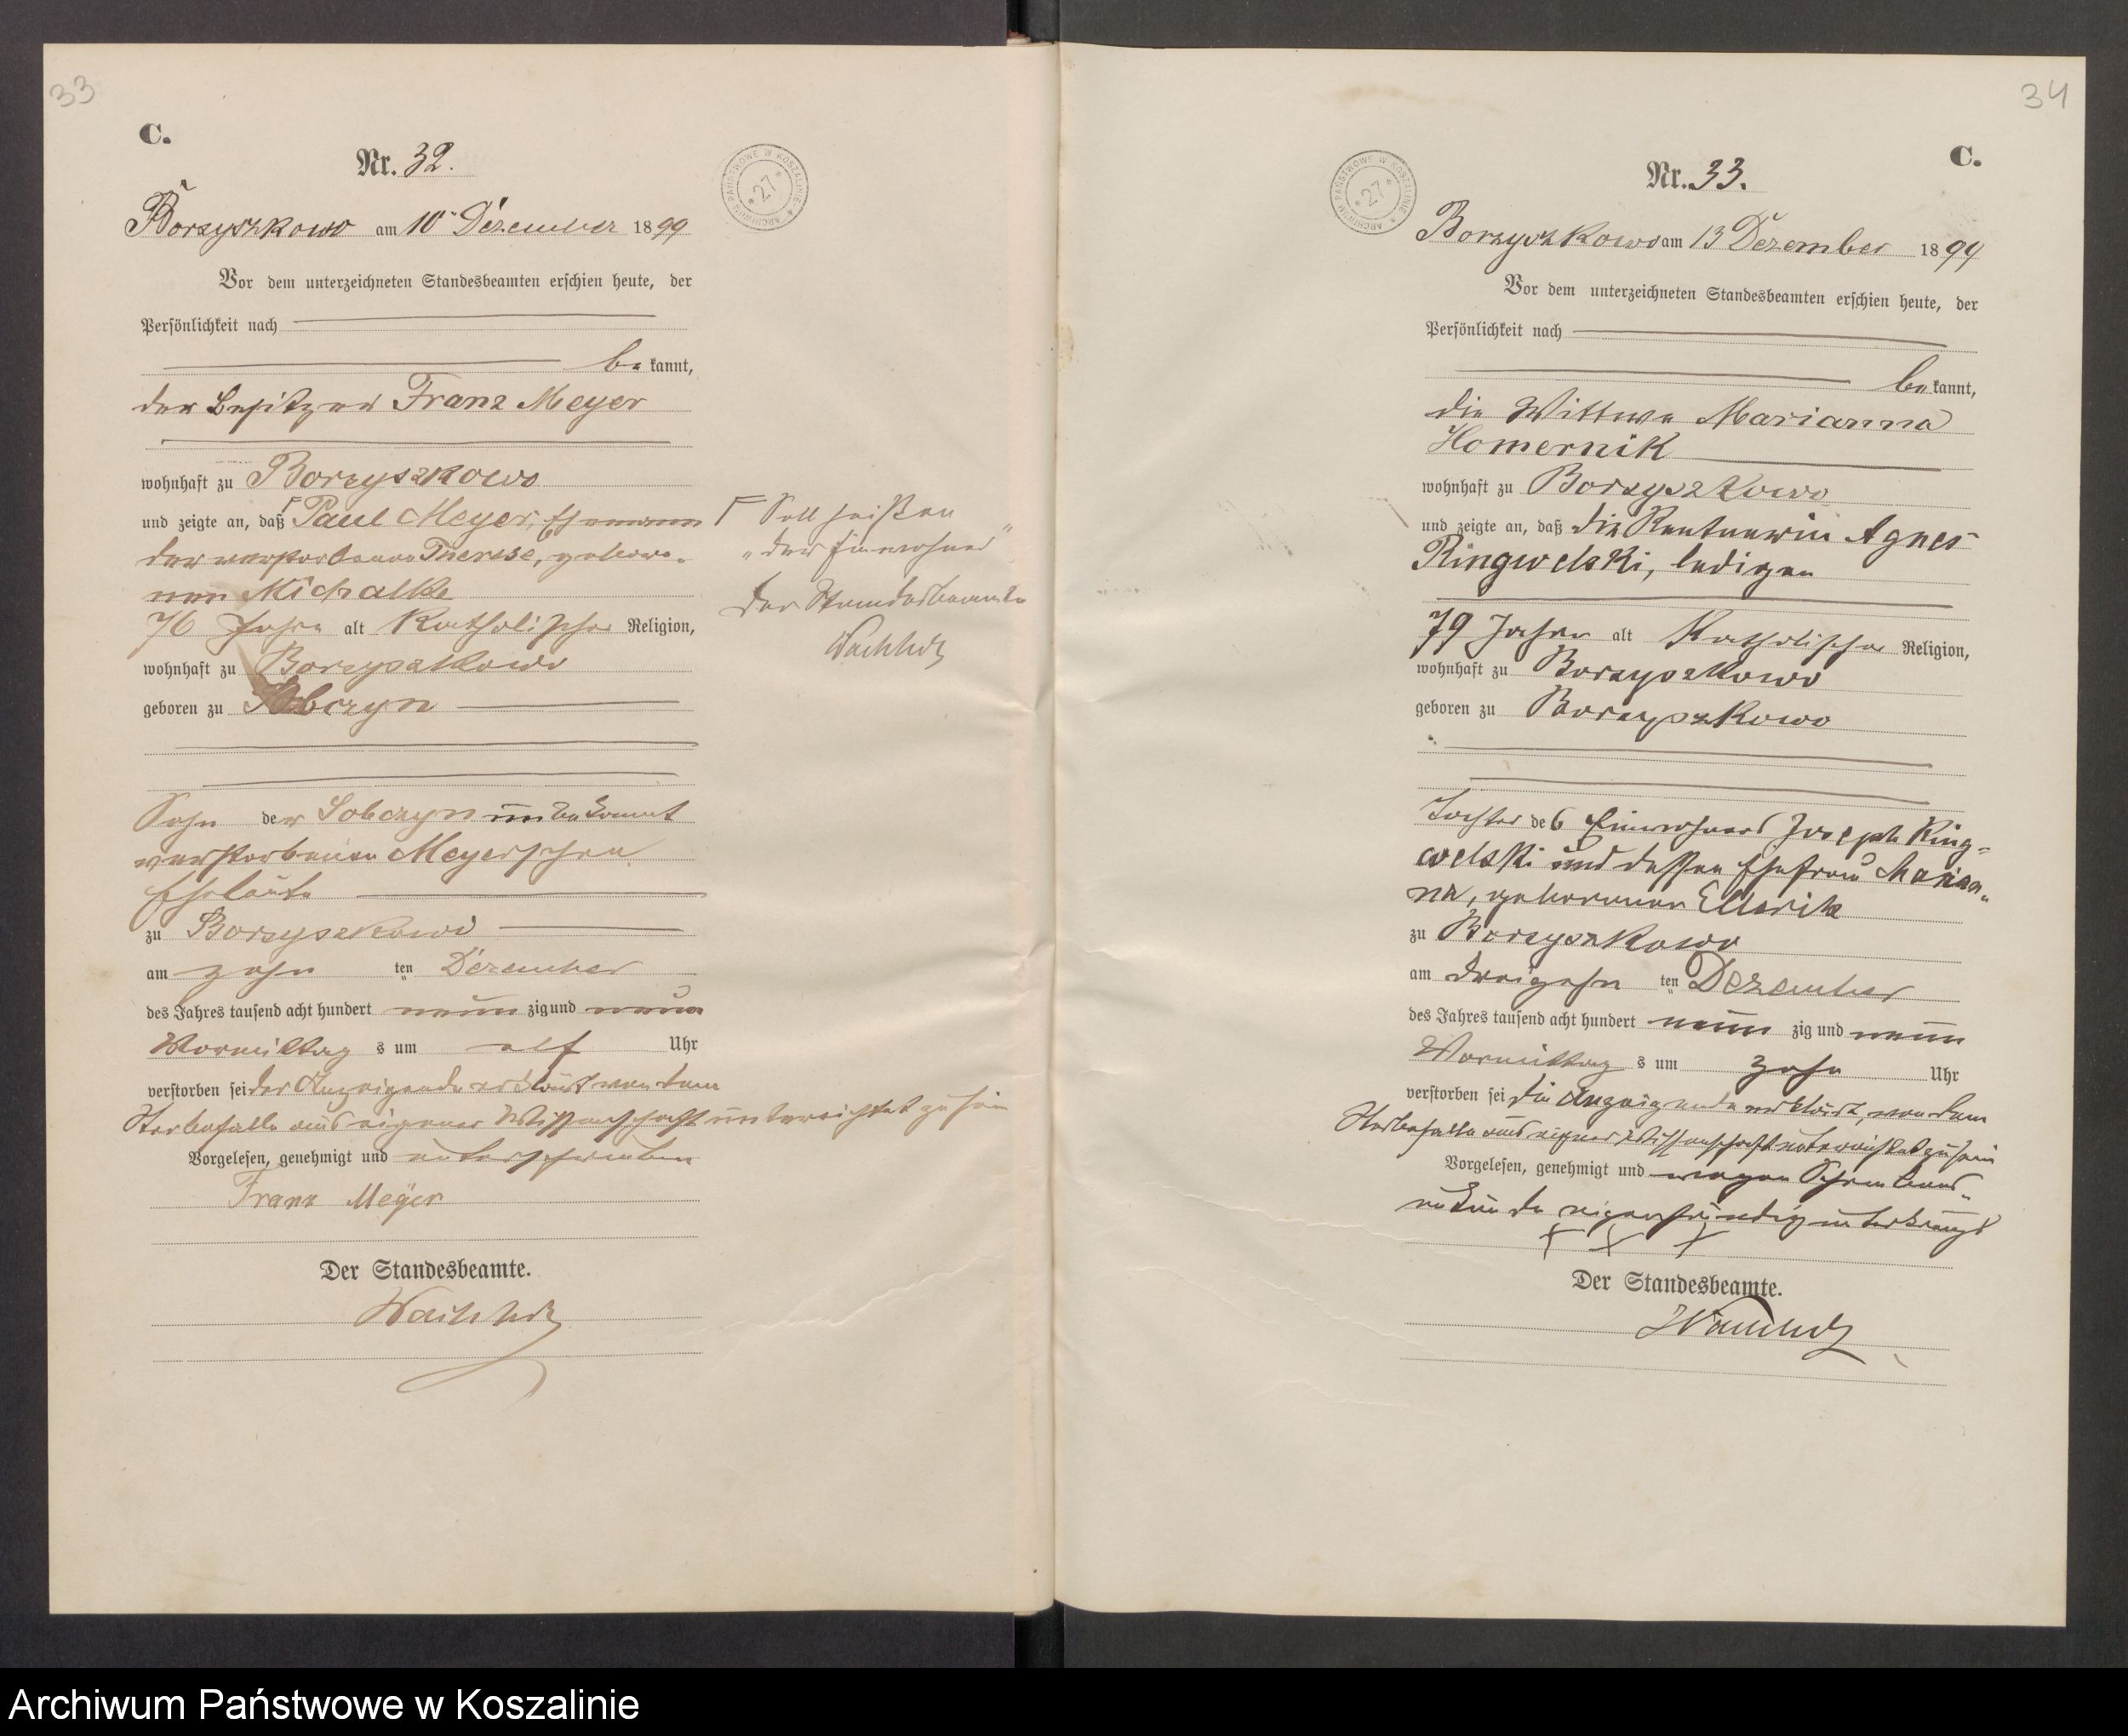 33
C.
Nr. 32.
ARCHIWUM PAŃSTWOWE W KOSZALINIE
* 27 *
Borzyszkowo am 10 Dezember 1899
Vor dem unterzeichneten Standesbeamten erschien heute, der
Persönlichkeit nach
be kannt,
der Besitzer Franz Meyer
wohnhaft zu Borzyszkowo
und zeigte an, daß Paul Meyer, Ehemann
der verstorbenen Therese, gebore-
nen Michalke
76 Jahre alt Katholischer Religion,
wohnhaft zu Borzyszkowo
geboren zu Sobczyn
Sohn der Sobczyn unbekannt
verstorbenen Meyerschen
Eheleute
zu Borzyszkowo
am zehn ten Dezember
des Jahres tausend acht hundert neun zig und neun
Vormittag s um elf Uhr
verstorben sei der Anzeigende erklärt von dem
Sterbefalle aus eigener Wissenschaft unterrichtet zu sein
Vorgelesen, genehmigt und unterschrieben
Franz Meyer
Der Standesbeamte.
Wachholz
Soll heißen
"der Einwohner"
Der Standesbeamte
Wachholz
34
C.
Nr. 33.
ARCHIWUM PAŃSTWOWE W KOSZALINIE
* 27 *
Borzyszkowo am 13 Dezember 1899
Vor dem unterzeichneten Standesbeamten erschien heute, der
Persönlichkeit nach
be kannt,
die Wittwe Marianna
Homernik
wohnhaft zu Borzyszkowo
und zeigte an, daß die Rentnerin Agnes
Ringwelski, ledigen
79 Jahre alt Katholischer Religion,
wohnhaft zu Borzyszkowo
geboren zu Borzyszkowo
Tochter des Einwohners Joseph Ring-
welski und dessen Ehefrau Marian-
na, geborenen Ellerik
zu Borzyszkowo
am dreizehn ten Dezember
des Jahres tausend acht hundert neun zig und neun
Vormittag s um zehn Uhr
verstorben sei die Anzeigende erklärt, von dem
Sterbefalle aus eigner Wissenschaft unterrichtet zu sein
Vorgelesen, genehmigt und wegen Schreibens-
unkunde eigenhändig unterkreuzt
+ + +
Der Standesbeamte.
Wachholz
Archiwum Państwowe w Koszalinie